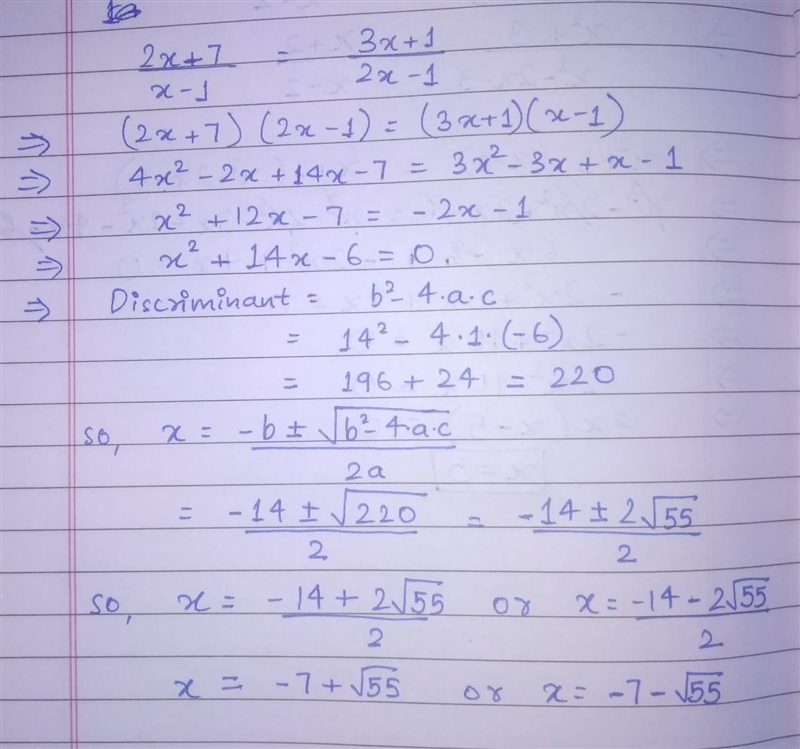 2x+7/x-1 = 3x+1/2x-1
⇒ (2x+7) (2x-1) = (3x+1)(x-1)
⇒ 4x² - 2x + 14x - 7 = 3x² - 3x + x - 1
⇒ x² + 12x - 7 = - 2x - 1
⇒ x² + 14x - 6 = 0.
⇒ Discriminant = b² - 4·a·c
= 14² - 4·1·(-6)
= 196 + 24 = 220
so, x = -b ± √b² - 4·a·c/2a
= -14 ± √220/2 = -14 ± 2√55/2
so, x = -14 + 2√55/2 or x = -14 - 2√55/2
x = -7 + √55 or x = -7 - √55